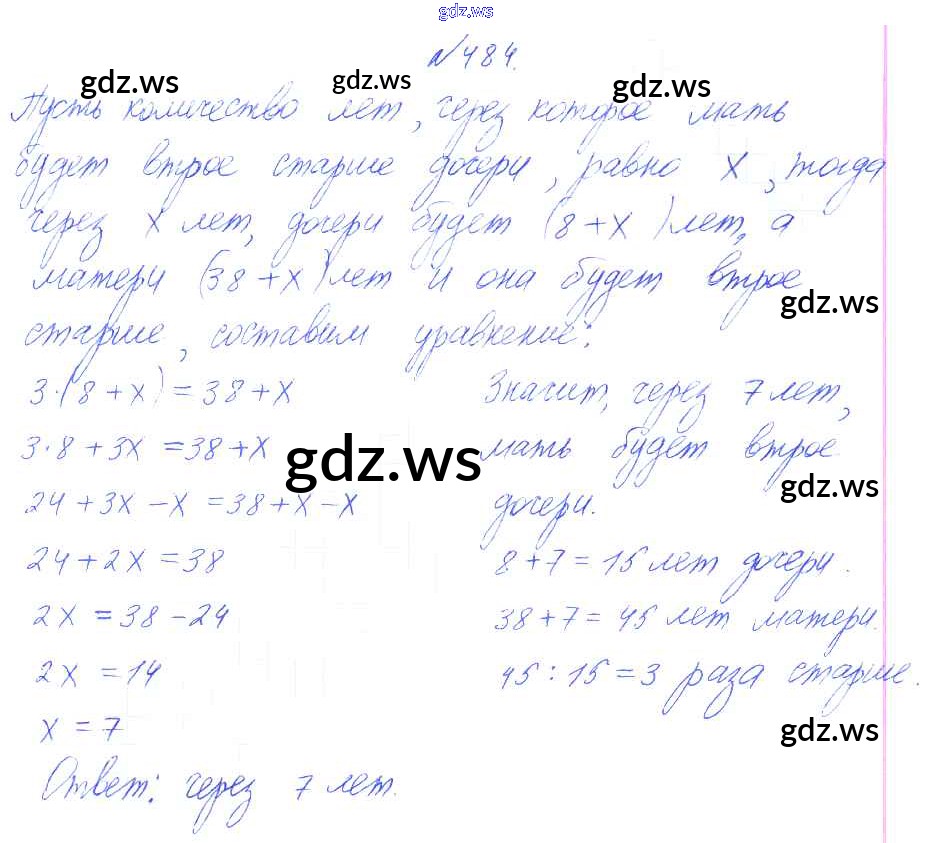 gdz.ws
№484.
gdz.ws gdz.ws gdz.ws
Пусть количество лет, через которое мать
будет втрое старше дочери, равно x, тогда
через x лет, дочери будет (8+x) лет, а
матери (38+x) лет и она будет втрое
gdz.ws
старше, составим уравнение:
3·(8+x)=38+x
3·8+3x=38+x
gdz.ws
24+3x-x=38+x-x
24+2x=38
2x=38-24
2x=14
x=7
Ответ: через 7 лет.
Значит, через 7 лет,
мать будет втрое
gdz.ws
дочери.
8+7=15 лет дочери.
38+7=45 лет матери.
45:15=3 раза старше.
gdz.ws